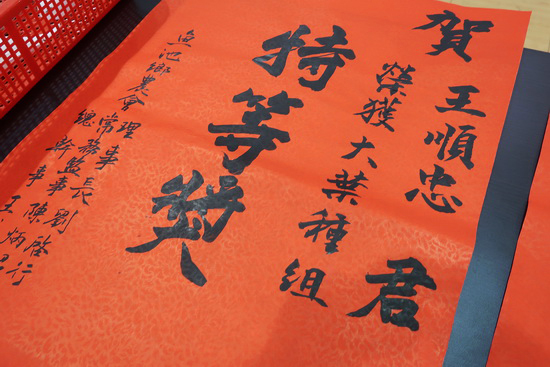 賀 王順忠 君
榮獲大葉種組
特等獎
魚池鄉農會
理事長劉啓行
常務監事陳
總幹事王炳